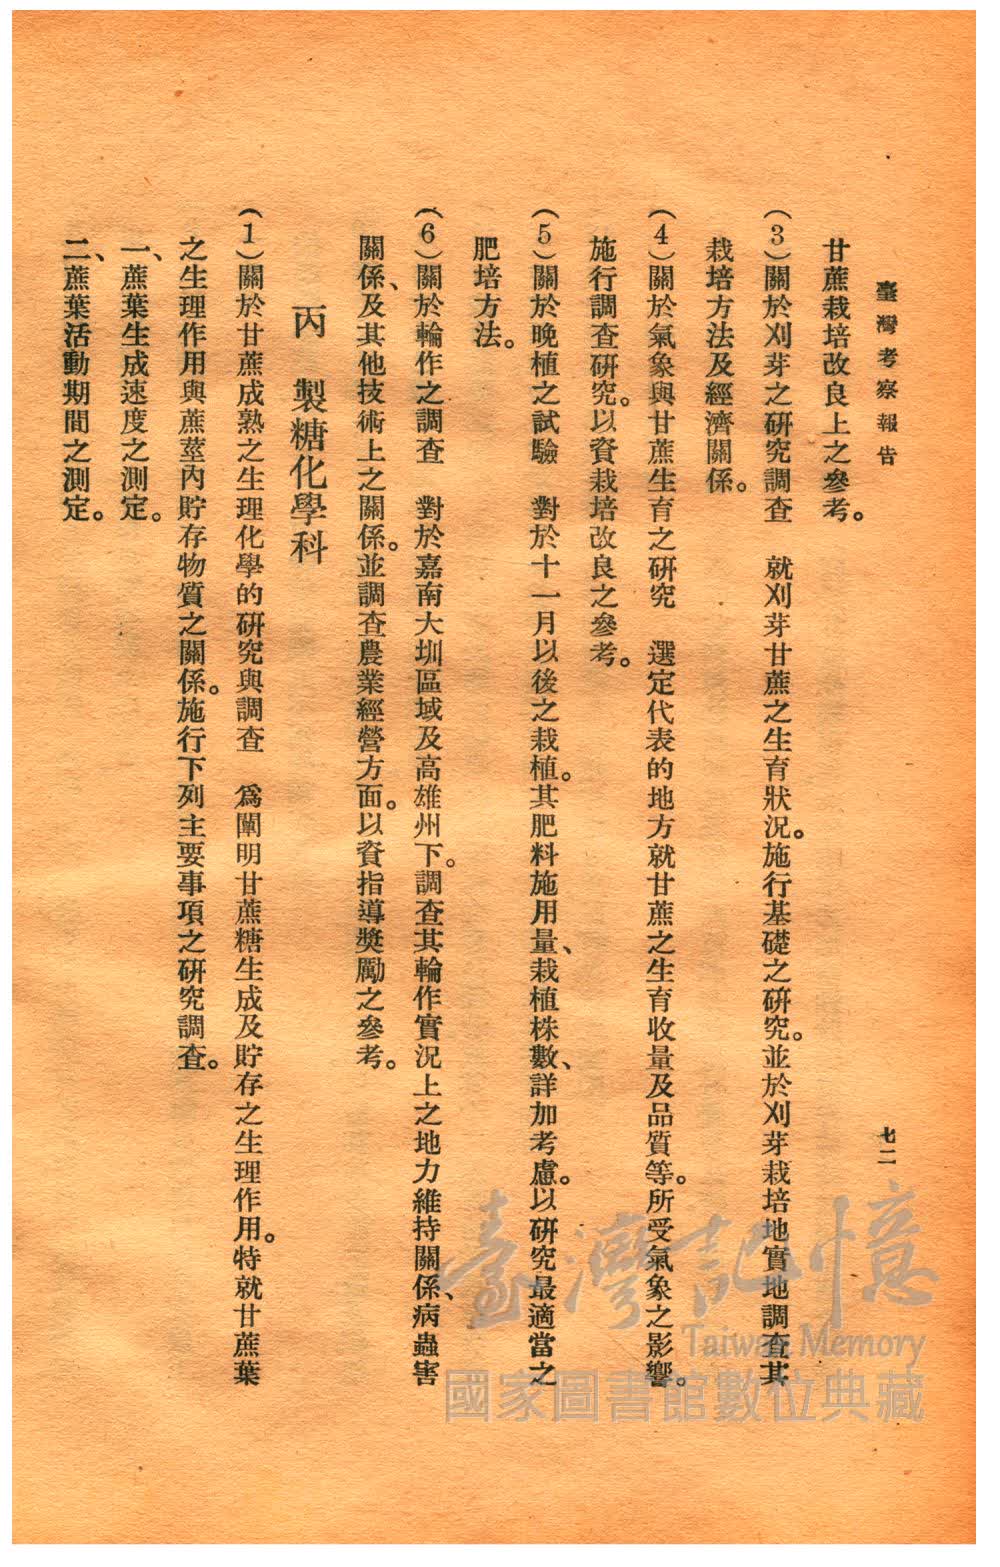 臺灣考察報告
七二
甘蔗栽培改良上之參考。
（3）關於刈芽之研究調查　就刈芽甘蔗之生育狀況。施行基礎之研究。並於刈芽栽培地實地調查其
栽培方法及經濟關係。
（4）關於氣象與甘蔗生育之研究　選定代表的地方就甘蔗之生育收量及品質等。所受氣象之影響。
施行調查研究。以資栽培改良之參考。
（5）關於晚植之試驗　對於十一月以後之栽植。其肥料施用量、栽植株數、詳加考慮。以研究最適當之
肥培方法。
（6）關於輪作之調查　對於嘉南大圳區域及高雄州下。調查其輪作實況上之地力維持關係、病蟲害
關係、及其他技術上之關係。並調查農業經營方面。以資指導獎勵之參考。
丙　製糖化學科
（1）關於甘蔗成熟之生理化學的研究與調查　爲闡明甘蔗糖生成及貯存之生理作用。特就甘蔗葉
之生理作用與蔗莖內貯存物質之關係。施行下列主要事項之研究調查。
一、蔗葉生成速度之測定。
二、蔗葉活動期間之測定。
臺灣記憶
Taiwan Memory
國家圖書館數位典藏